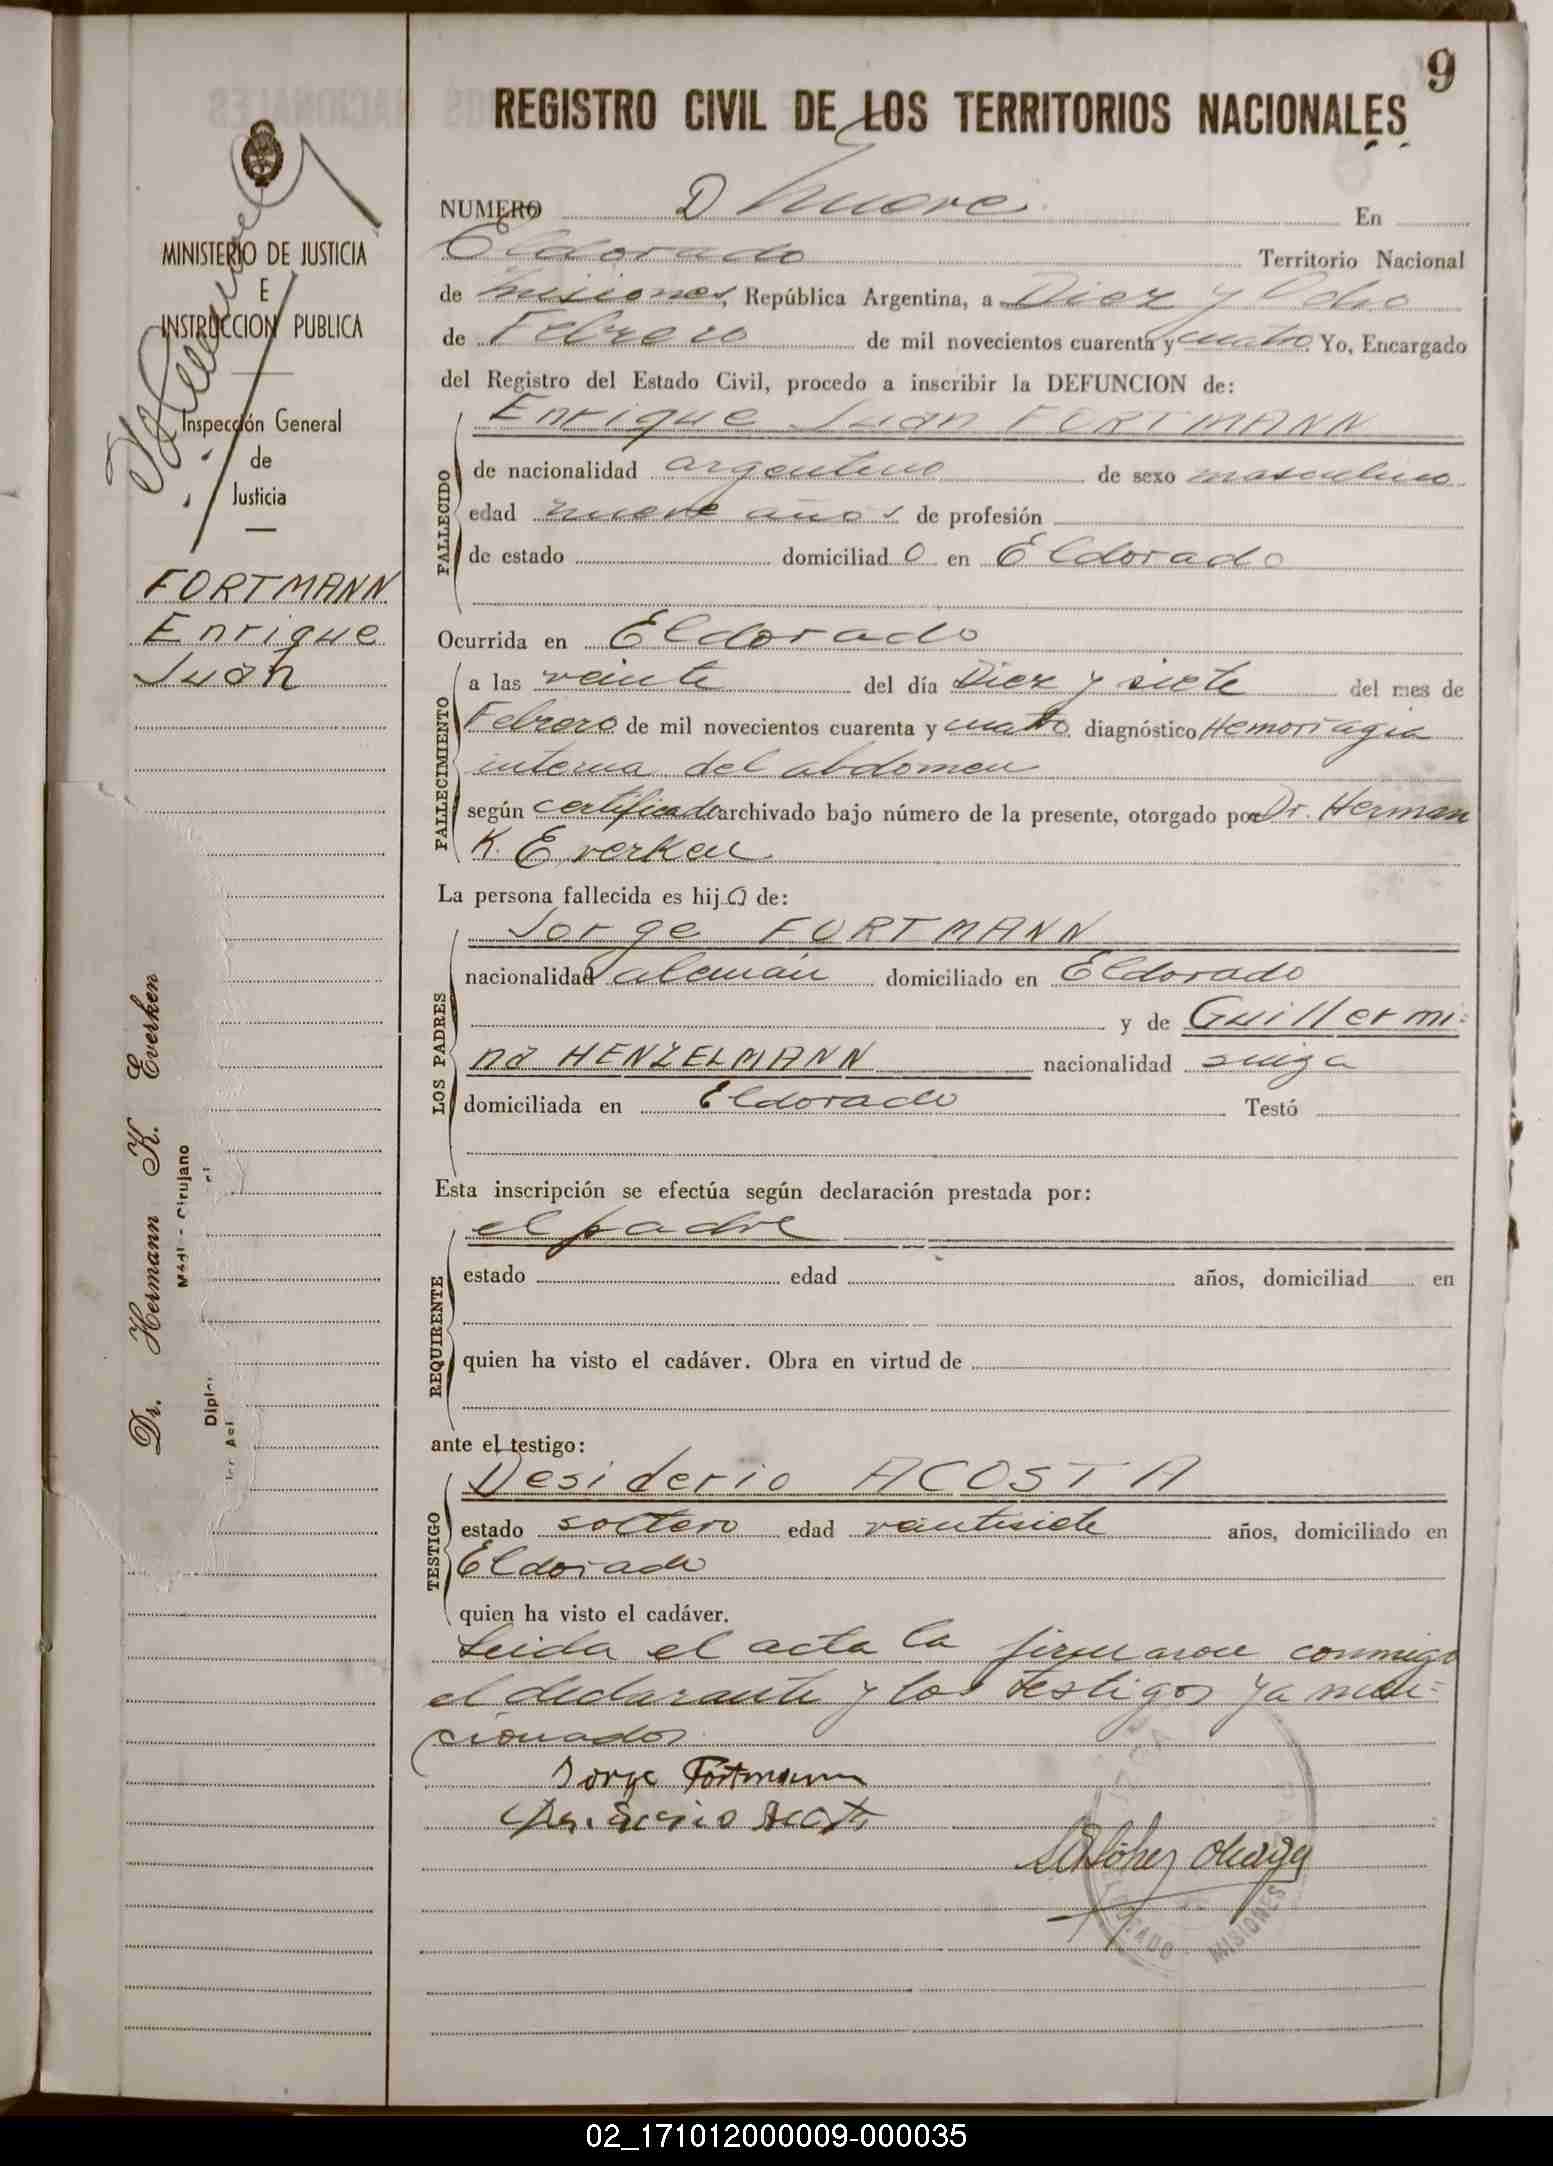 9
REGISTRO CIVIL DE LOS TERRITORIOS NACIONALES
MINISTERIO DE JUSTICIA
E
INSTRUCCION PUBLICA
Inspección General
de
Justicia
FORTMANN
Enrique
Juan
Dr. Hermann K. Everken
NUMERO D Nueve En
Eldorado Territorio Nacional
de Misiones, República Argentina, a Diez y Ocho
de Febrero de mil novecientos cuarenta y cuatro Yo, Encargado
del Registro del Estado Civil, procedo a inscribir la DEFUNCION de:
Enrique Juan FORTMANN
FALLECIDO
de nacionalidad argentino de sexo masculino
edad nueve años de profesión
de estado domiciliad o en Eldorado
Ocurrida en Eldorado
FALLECIMIENTO
a las veinte del día Diez y siete del mes de
Febrero de mil novecientos cuarenta y cuatro diagnóstico Hemorragia
interna del abdomen
según certificado archivado bajo número de la presente, otorgado por Dr. Herman
K. Everken
La persona fallecida es hijo de:
LOS PADRES
Jorge FORTMANN
nacionalidad alemán domiciliado en Eldorado
y de Guillermi=
na HENZELMANN nacionalidad suiza
domiciliada en Eldorado Testó
Esta inscripción se efectúa según declaración prestada por:
REQUIRENTE
el padre
estado edad años, domiciliad en
quien ha visto el cadáver. Obra en virtud de
ante el testigo:
TESTIGO
Desiderio ACOSTA
estado soltero edad veintisiete años, domiciliado en
Eldorado
quien ha visto el cadáver.
Leida el acta la firmaron conmigo
el declarante y los testigos ya men=
cionados
Jorge Fortmann
Desiderio Acosta
MISIONES
02_171012000009-000035